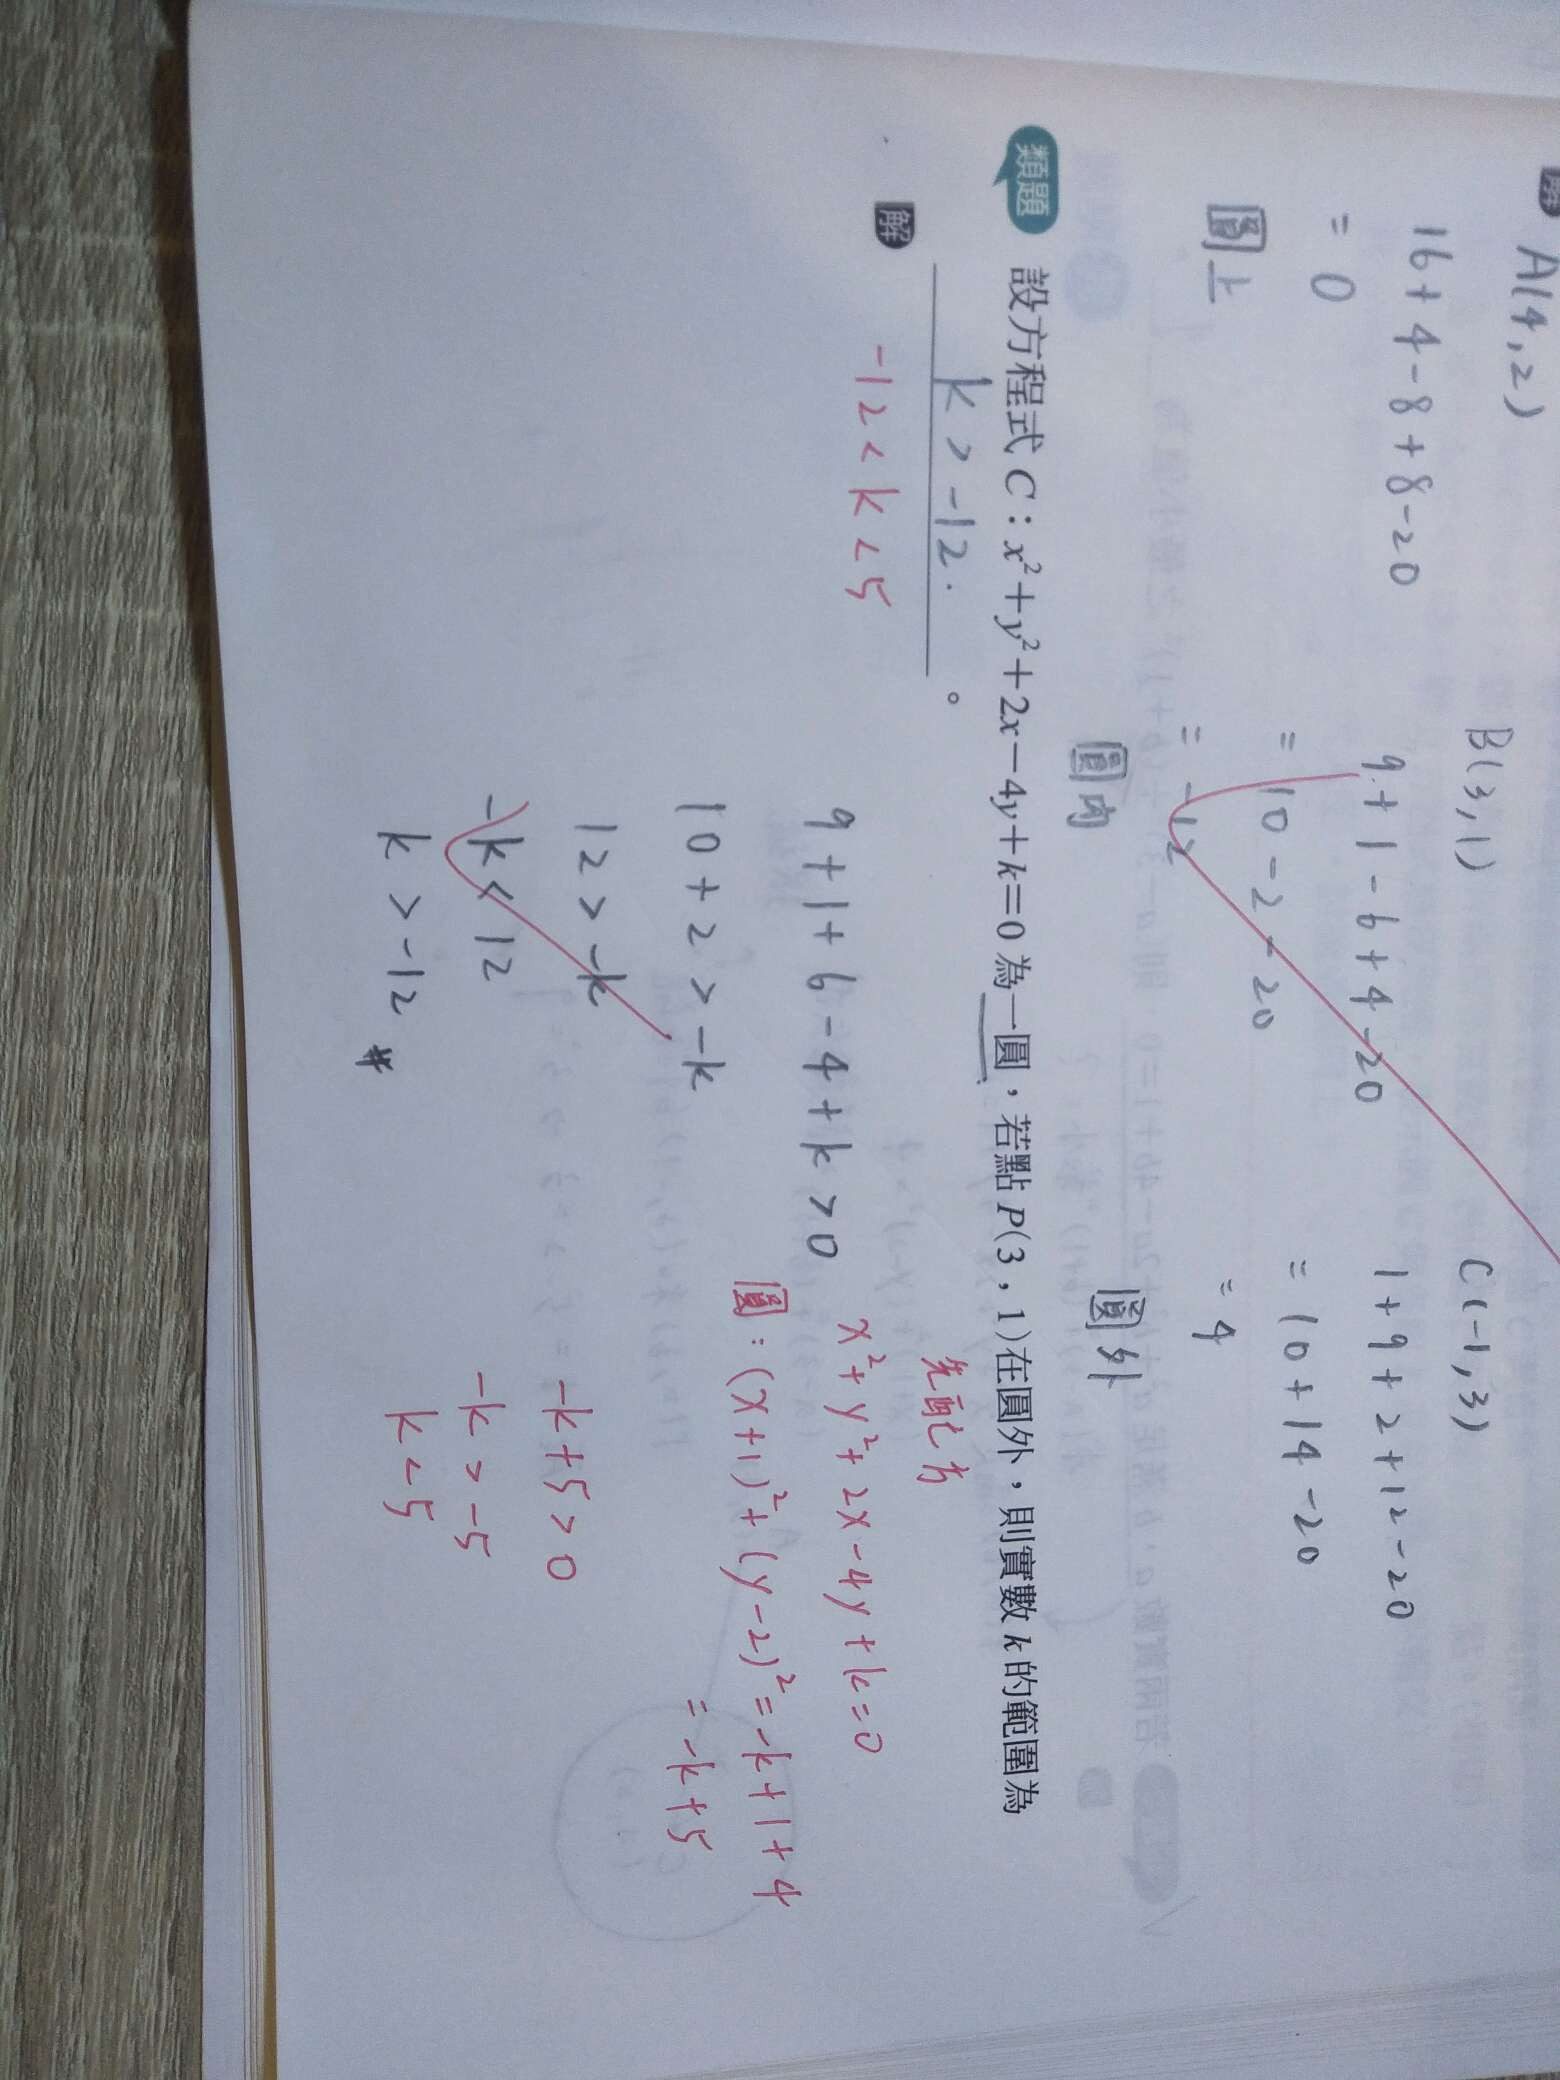 解 A(4,2)
16+4-8+8-20
= 0
圓上
B(3,1)
9+1-6+4-20
= 10-2-20
= -12
圓內
C(-1,3)
1+9+2+12-20
= 10+14-20
= 4
圓外
類題 設方程式 C：x²+y²+2x-4y+k=0 為一圓，若點 P(3，1)在圓外，則實數 k 的範圍為
k > -12. 。
解 -12 < k < 5
9+1+6-4+k >0
10+2 > -k
12 > -k
-k < 12
k > -12 #
先配方
x²+y²+2x-4y+k=0
圓：(x+1)²+(y-2)²=-k+1+4
= -k+5
-k+5>0
-k>-5
k<5